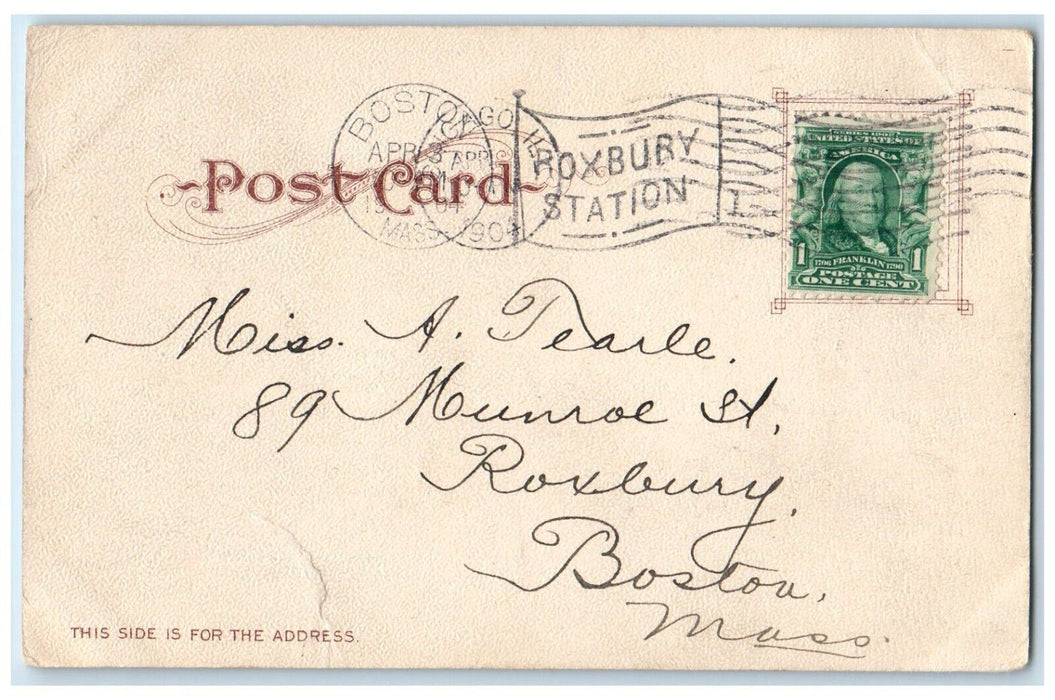 Post Card
BOSTON
APR 3
MASS.
APR
1904
ROXBURY
STATION
1
SERIES 1902
UNITED STATES OF
AMERICA
1706 FRANKLIN 1790
1 POSTAGE 1
ONE CENT
Miss. A. Tearle.
89 Munroe St,
Roxbury,
Boston,
Mass.
THIS SIDE IS FOR THE ADDRESS.